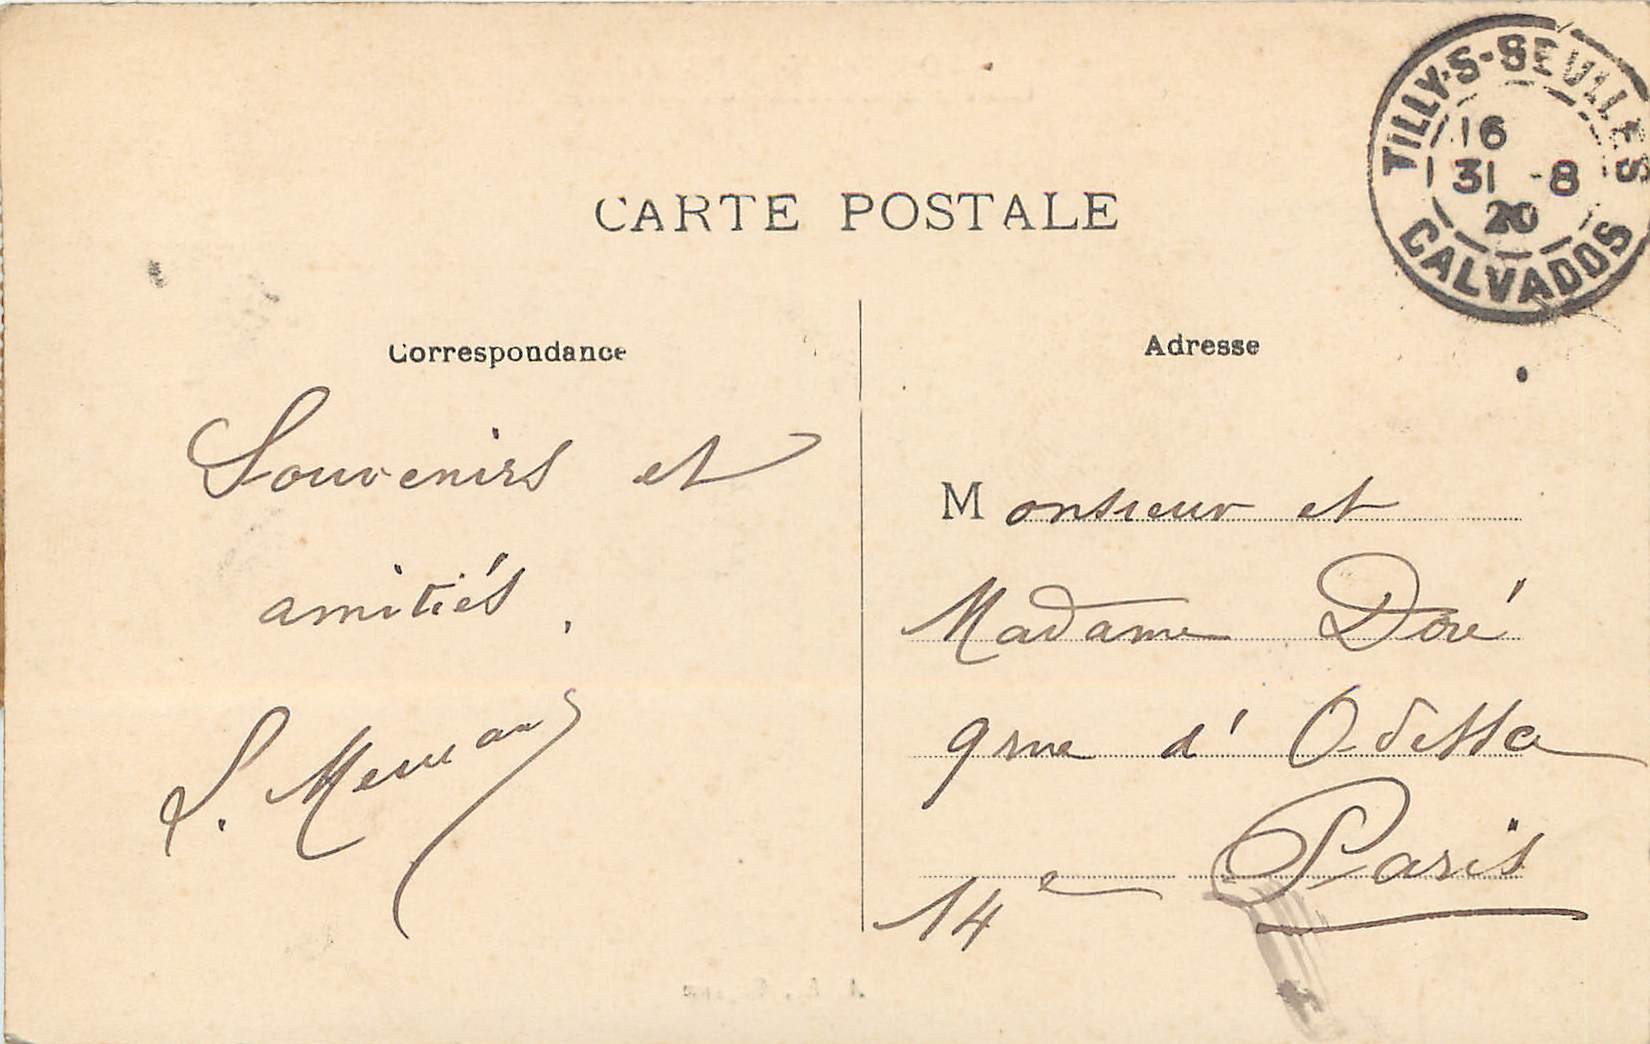 CARTE POSTALE
TILLY-S-SEULLES
16
31 - 8
20
CALVADOS
Correspondance
Souvenirs et
amitiés.
Adresse
Monsieur et
Madame Doré
9 rue d'Odessa
Paris
14e